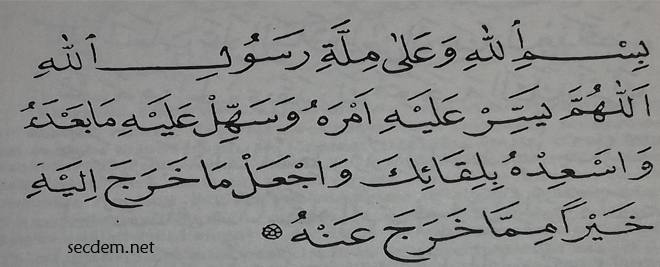 بِسْمِ ٱللّٰهِ وَعَلٰى مِلَّةِ رَسُولِ ٱللّٰهِ
اَللّٰهُمَّ يَسِّرْ عَلَيْهِ اَمْرَهُ وَسَهِّلْ عَلَيْهِ مَا بَعْدَهُ
وَاسْعِدْهُ بِلِقَائِكَ وَاجْعَلْ مَا خَرَجَ اِلَيْهِ
خَيْرًا مِمَّا خَرَجَ عَنْهُ
secdem.net